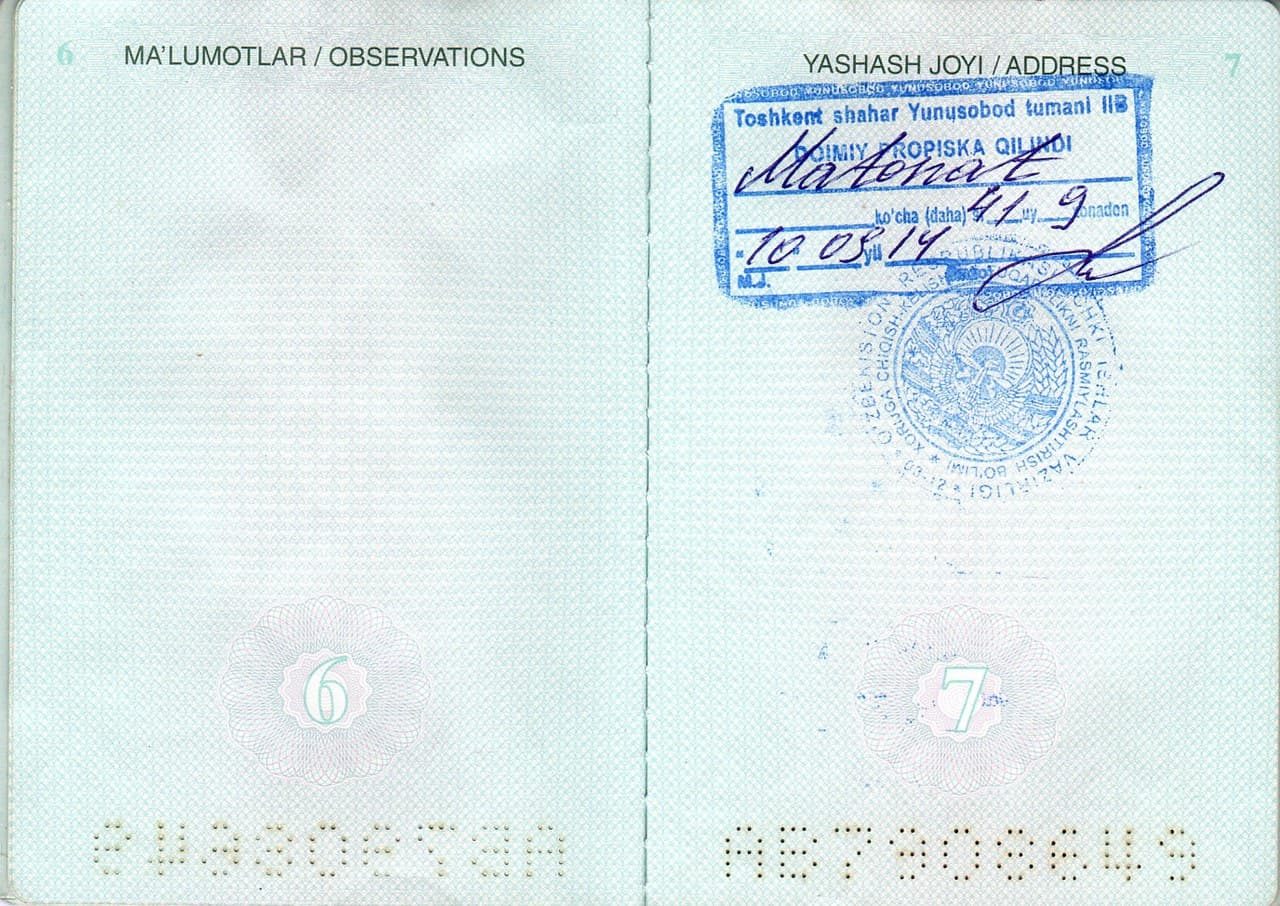 6 MA'LUMOTLAR / OBSERVATIONS
6
YASHASH JOYI / ADDRESS 7
YUNUSOBOD YUNUSOBOD YUNUSOBOD
Toshkent shahar Yunusobod tumani IIB
DOIMIY PROPISKA QILINDI
Matonat
ko'cha (daha) 41 uy 9 onadon
"10" 09 yil 14
M.J.
O'ZBEKISTON RESPUBLIKASI ICHKI ISHLAR VAZIRLIGI
XORIJGA CHIQISH-KELISH RASMIYLASHTIRISH BO'LIMI
7
AB7908649